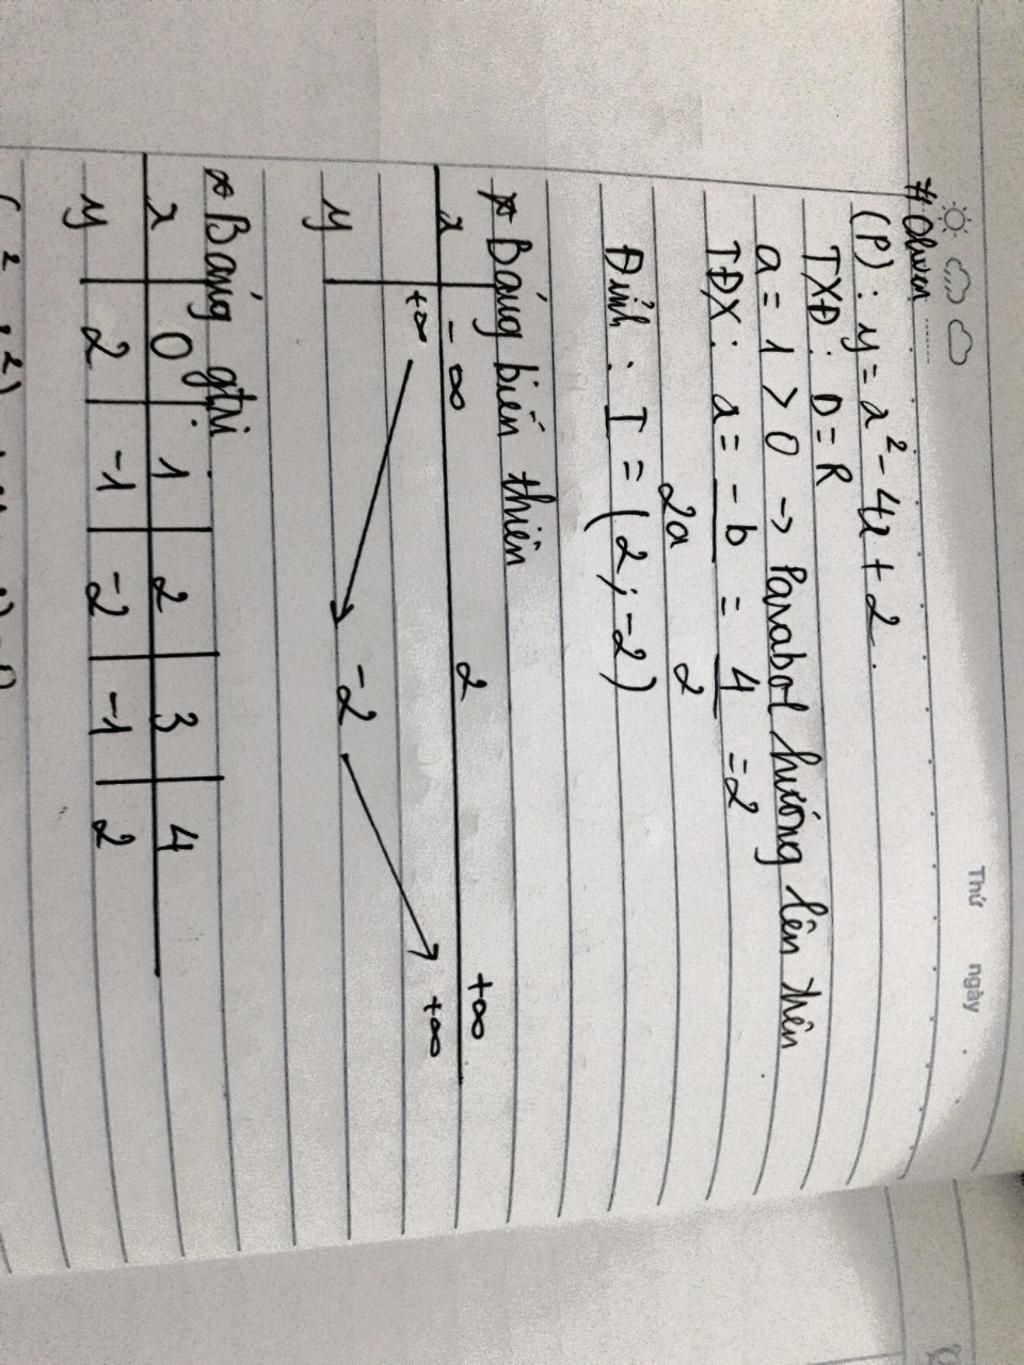 Thứ ngày
# Oliver
(P) : y = x² - 4x + 2.
TXĐ : D = R
a = 1 > 0 → Parabol hướng lên trên
TĐX : x = -b/2a = 4/2 = 2
Đỉnh : I = (2 ; -2)
* Bảng biến thiên
x -∞ 2 +∞
y +∞ -2 +∞
* Bảng gtri
x 0 1 2 3 4
y 2 -1 -2 -1 2